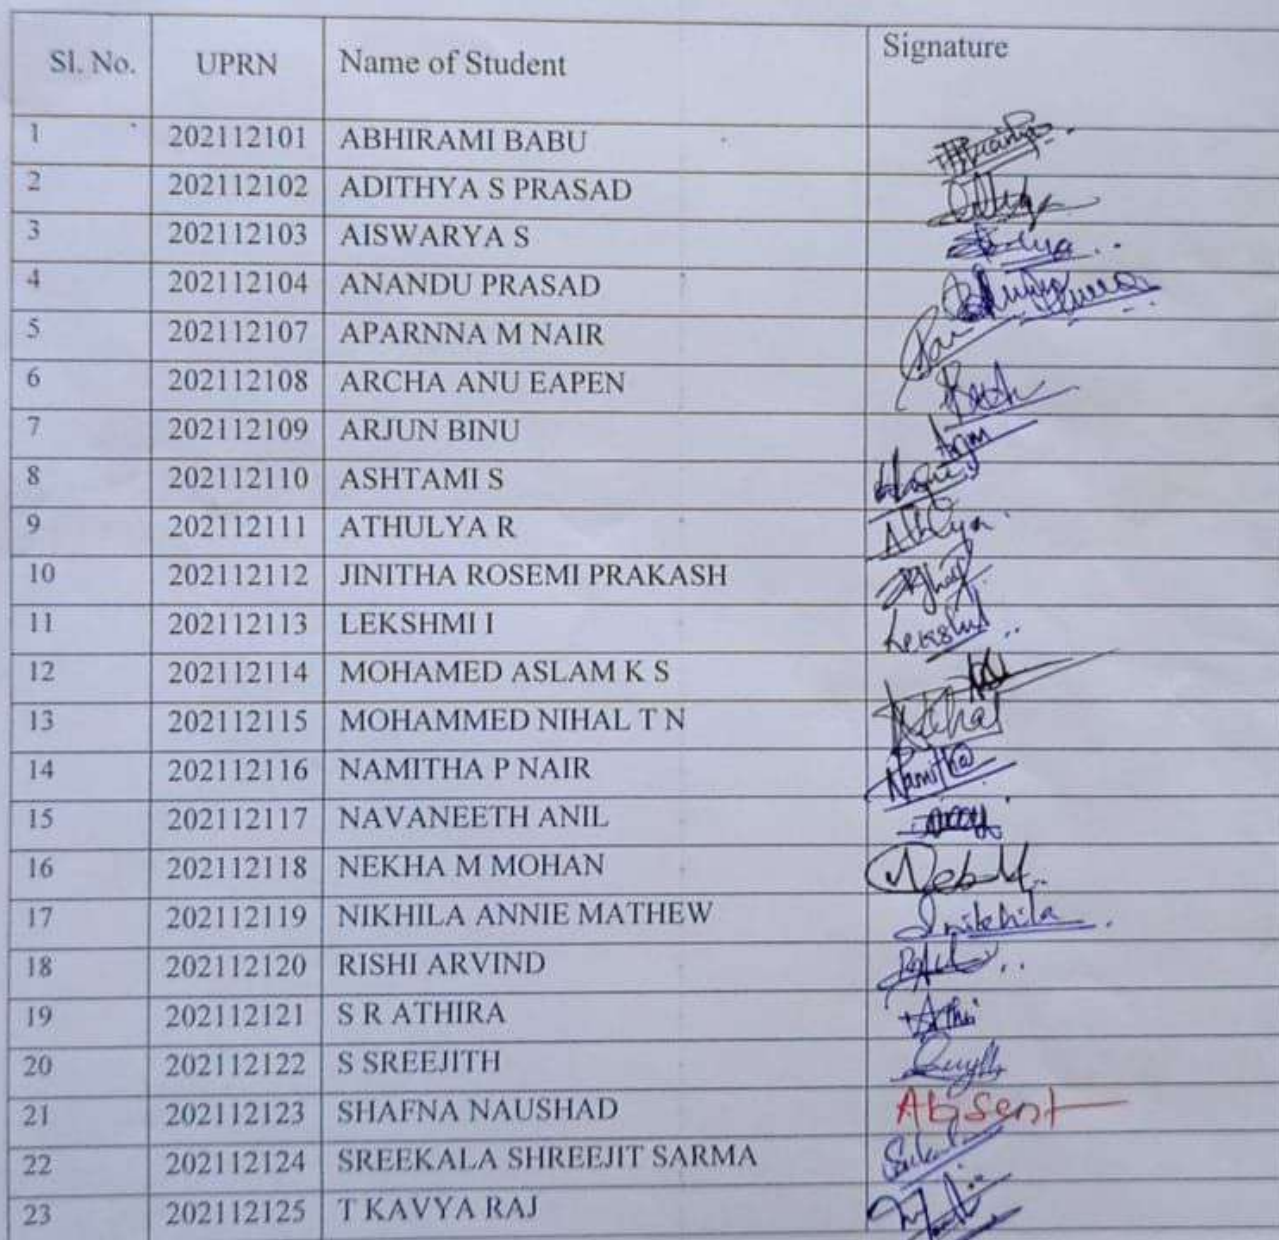 Sl. No. UPRN Name of Student Signature
1 202112101 ABHIRAMI BABU
2 202112102 ADITHYA S PRASAD
3 202112103 AISWARYA S
4 202112104 ANANDU PRASAD
5 202112107 APARNNA M NAIR
6 202112108 ARCHA ANU EAPEN
7 202112109 ARJUN BINU Arjun
8 202112110 ASHTAMI S
9 202112111 ATHULYA R Athulya
10 202112112 JINITHA ROSEMI PRAKASH
11 202112113 LEKSHMI I Lekshmi
12 202112114 MOHAMED ASLAM K S
13 202112115 MOHAMMED NIHAL T N Nihal
14 202112116 NAMITHA P NAIR Namitha
15 202112117 NAVANEETH ANIL
16 202112118 NEKHA M MOHAN
17 202112119 NIKHILA ANNIE MATHEW Nikhila
18 202112120 RISHI ARVIND
19 202112121 S R ATHIRA
20 202112122 S SREEJITH
21 202112123 SHAFNA NAUSHAD Absent
22 202112124 SREEKALA SHREEJIT SARMA
23 202112125 T KAVYA RAJ